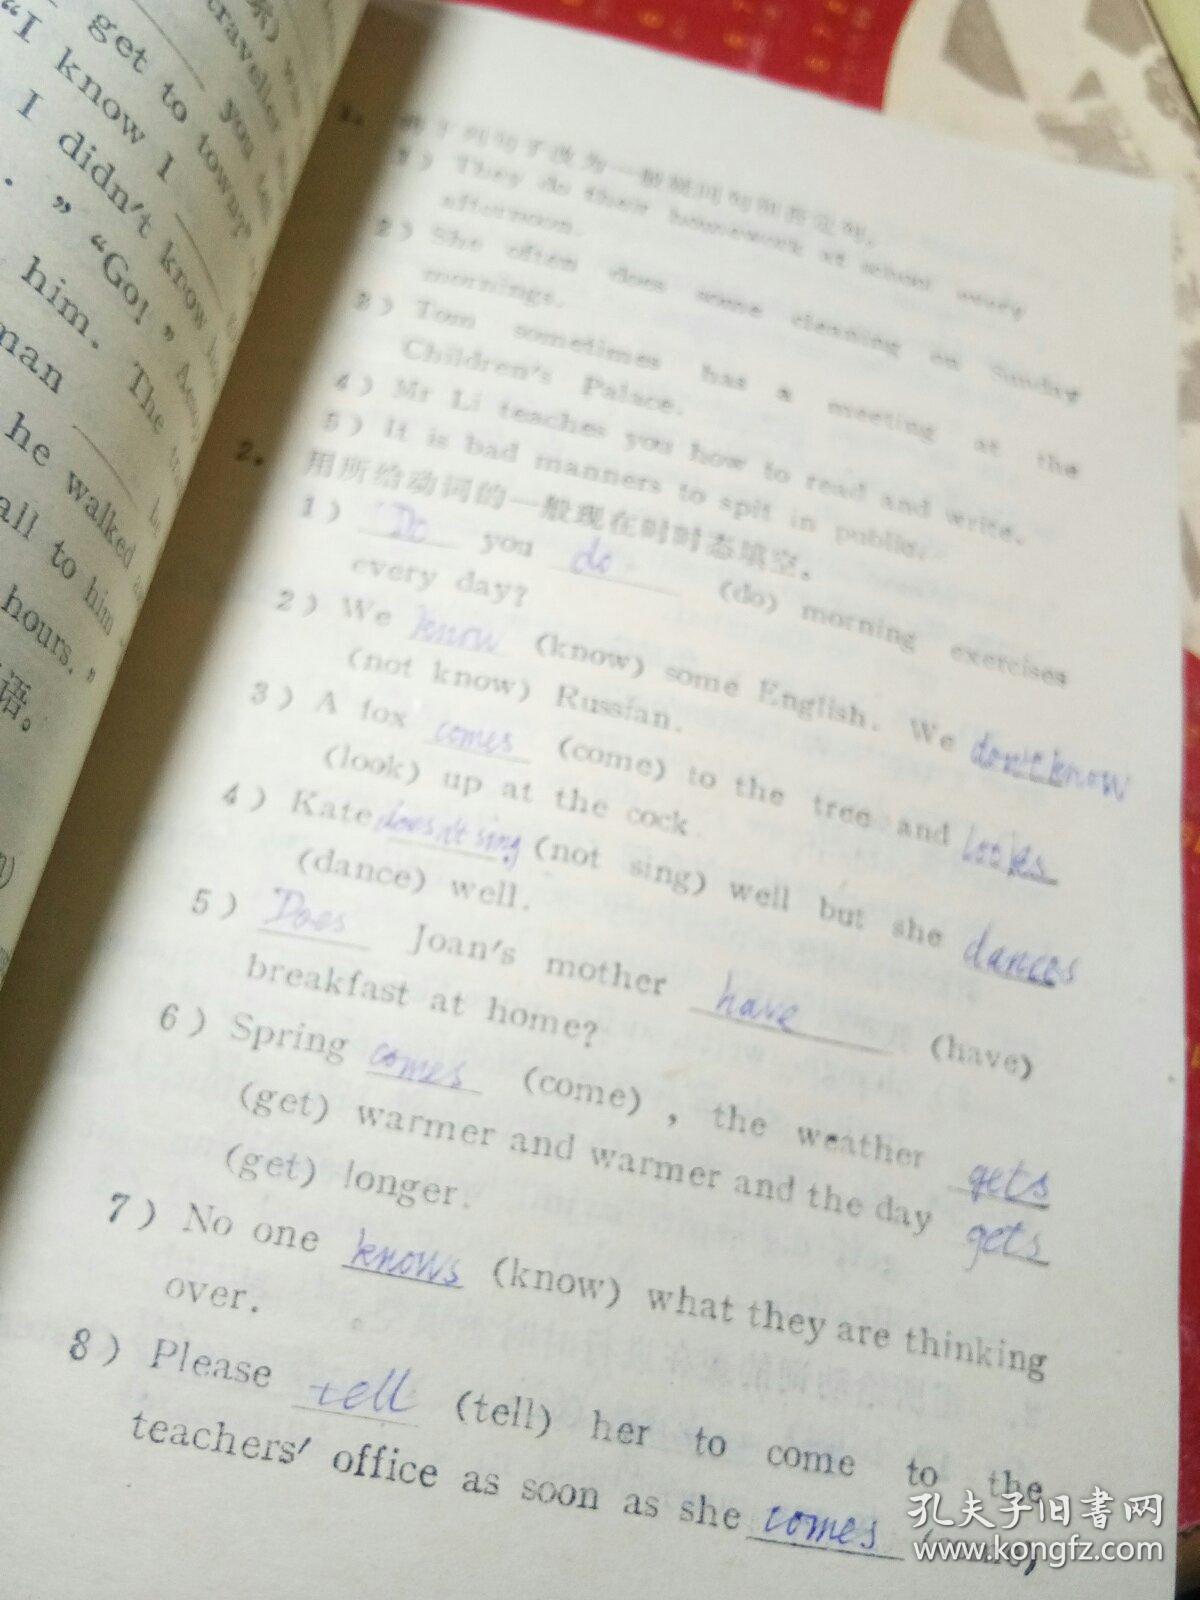 get to town?"
you
traveller
"I know I
I didn't know
"Go!"
him. The
man
he walked
all to him
hours."
语。
1. 将下列句子改为一般疑问句和否定句。
1) They do their homework at school every
afternoon.
2) She often does some cleaning on Sunday
mornings.
3) Tom sometimes has a meeting at the
Children's Palace.
4) Mr Li teaches you how to read and write.
5) It is bad manners to spit in public.
2. 用所给动词的一般现在时时态填空。
1) Do you do (do) morning exercises
every day?
2) We know (know) some English. We don't know
(not know) Russian.
3) A fox comes (come) to the tree and looks
(look) up at the cock.
4) Kate doesn't sing (not sing) well but she dances
(dance) well.
5) Does Joan's mother have (have)
breakfast at home?
6) Spring comes (come), the weather gets
(get) warmer and warmer and the day gets
(get) longer.
7) No one knows (know) what they are thinking
over.
8) Please tell (tell) her to come to the
teachers' office as soon as she comes (come,
孔夫子旧书网
www.kongfz.com